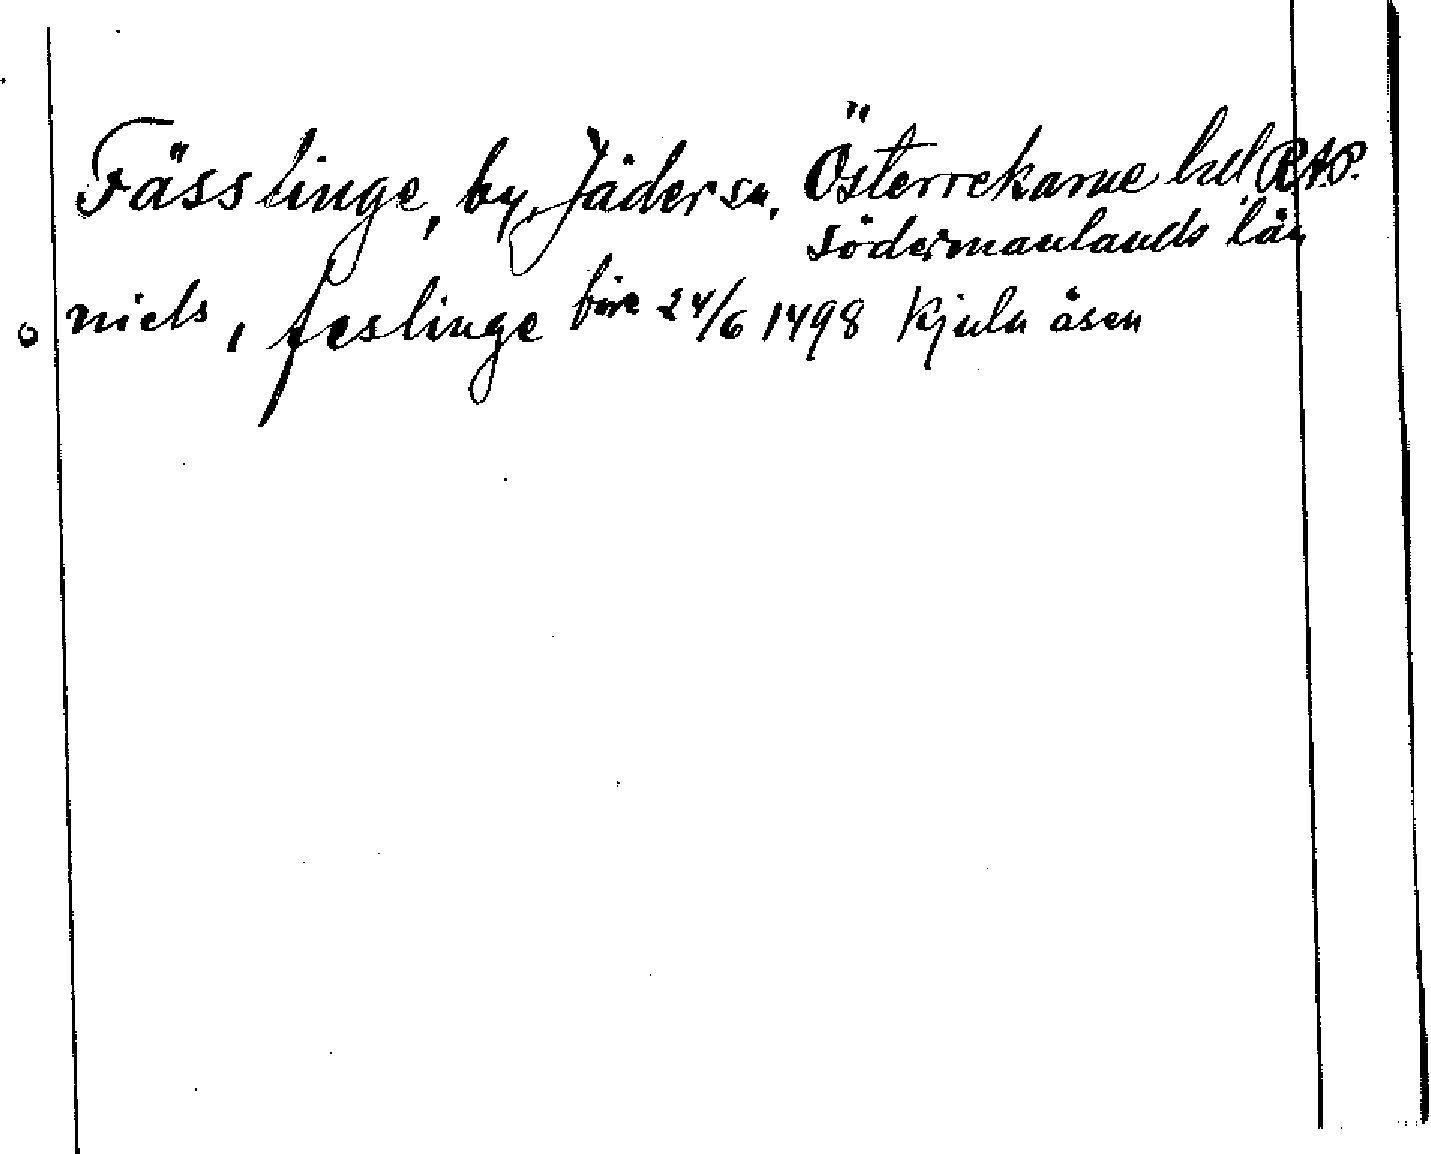 Fässlinge, by, Jäder sn, Österrekarne hd RAP.
Södermanlands län
o niels, i feslinge före 24/6 1498 Kjula åsen